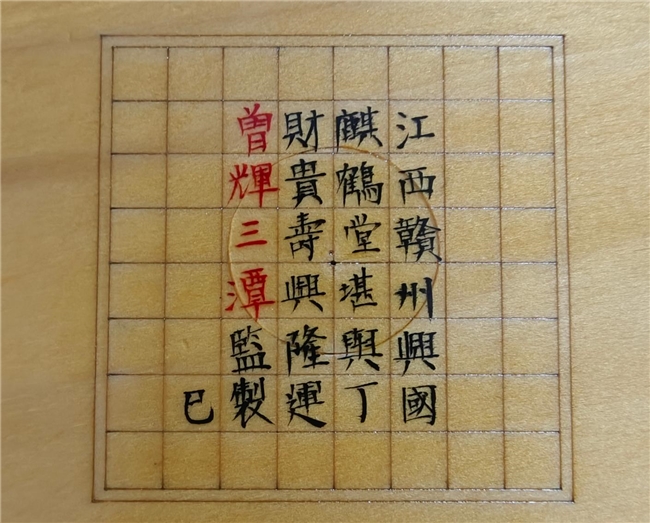 江西贛州興國
麒鶴堂堪輿丁
財貴壽興隆運
曾輝三潭監製
巳